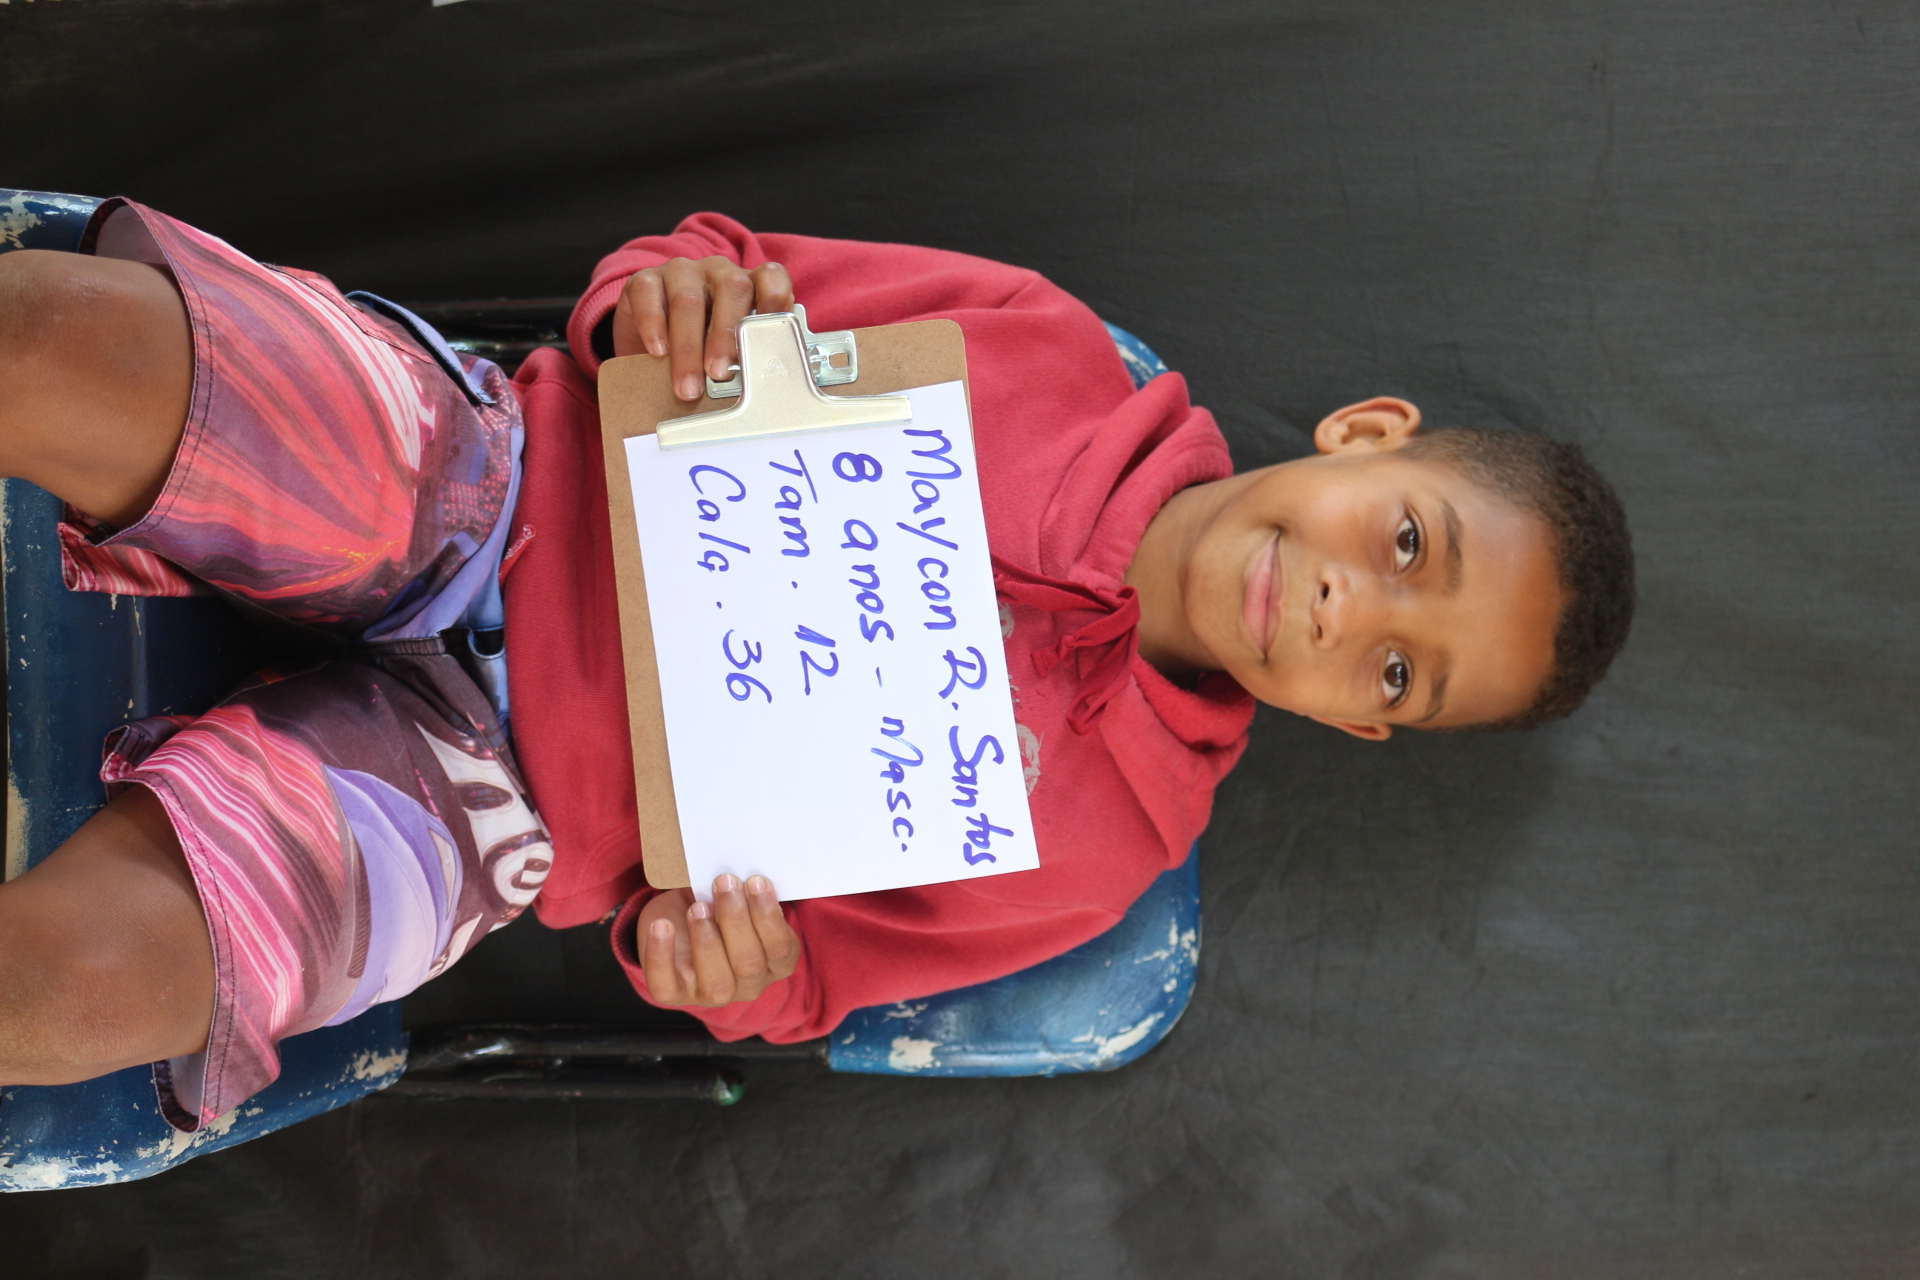 Maycon R. Santos
8 anos - Masc.
Tam. 12
Calç. 36